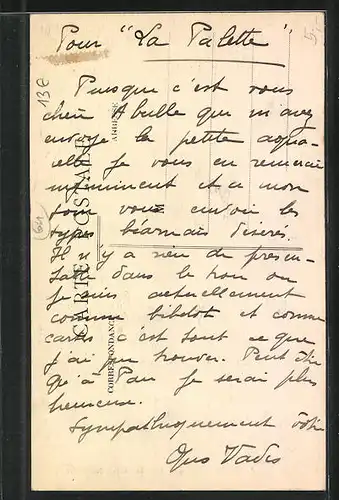 Pour "La Palette"
Puisque c'est vous
cher Abulle que m'avez
envoyé la petite aqua-
relle je vous en remercie
infiniment et à mon
tour vous envoie les
types béarnais désirés.
Il n'y a rien de présen-
table dans le trou où
je suis actuellement
comme bibelot et comme
cartes c'est tout ce que
j'ai pu trouver. Peut être
qu'à Pau je serai plus
heureuse.
Sympathiquement vôtre
Quo Vadis
CARTE POSTALE
CORRESPONDANCE
ADRESSE
138
64